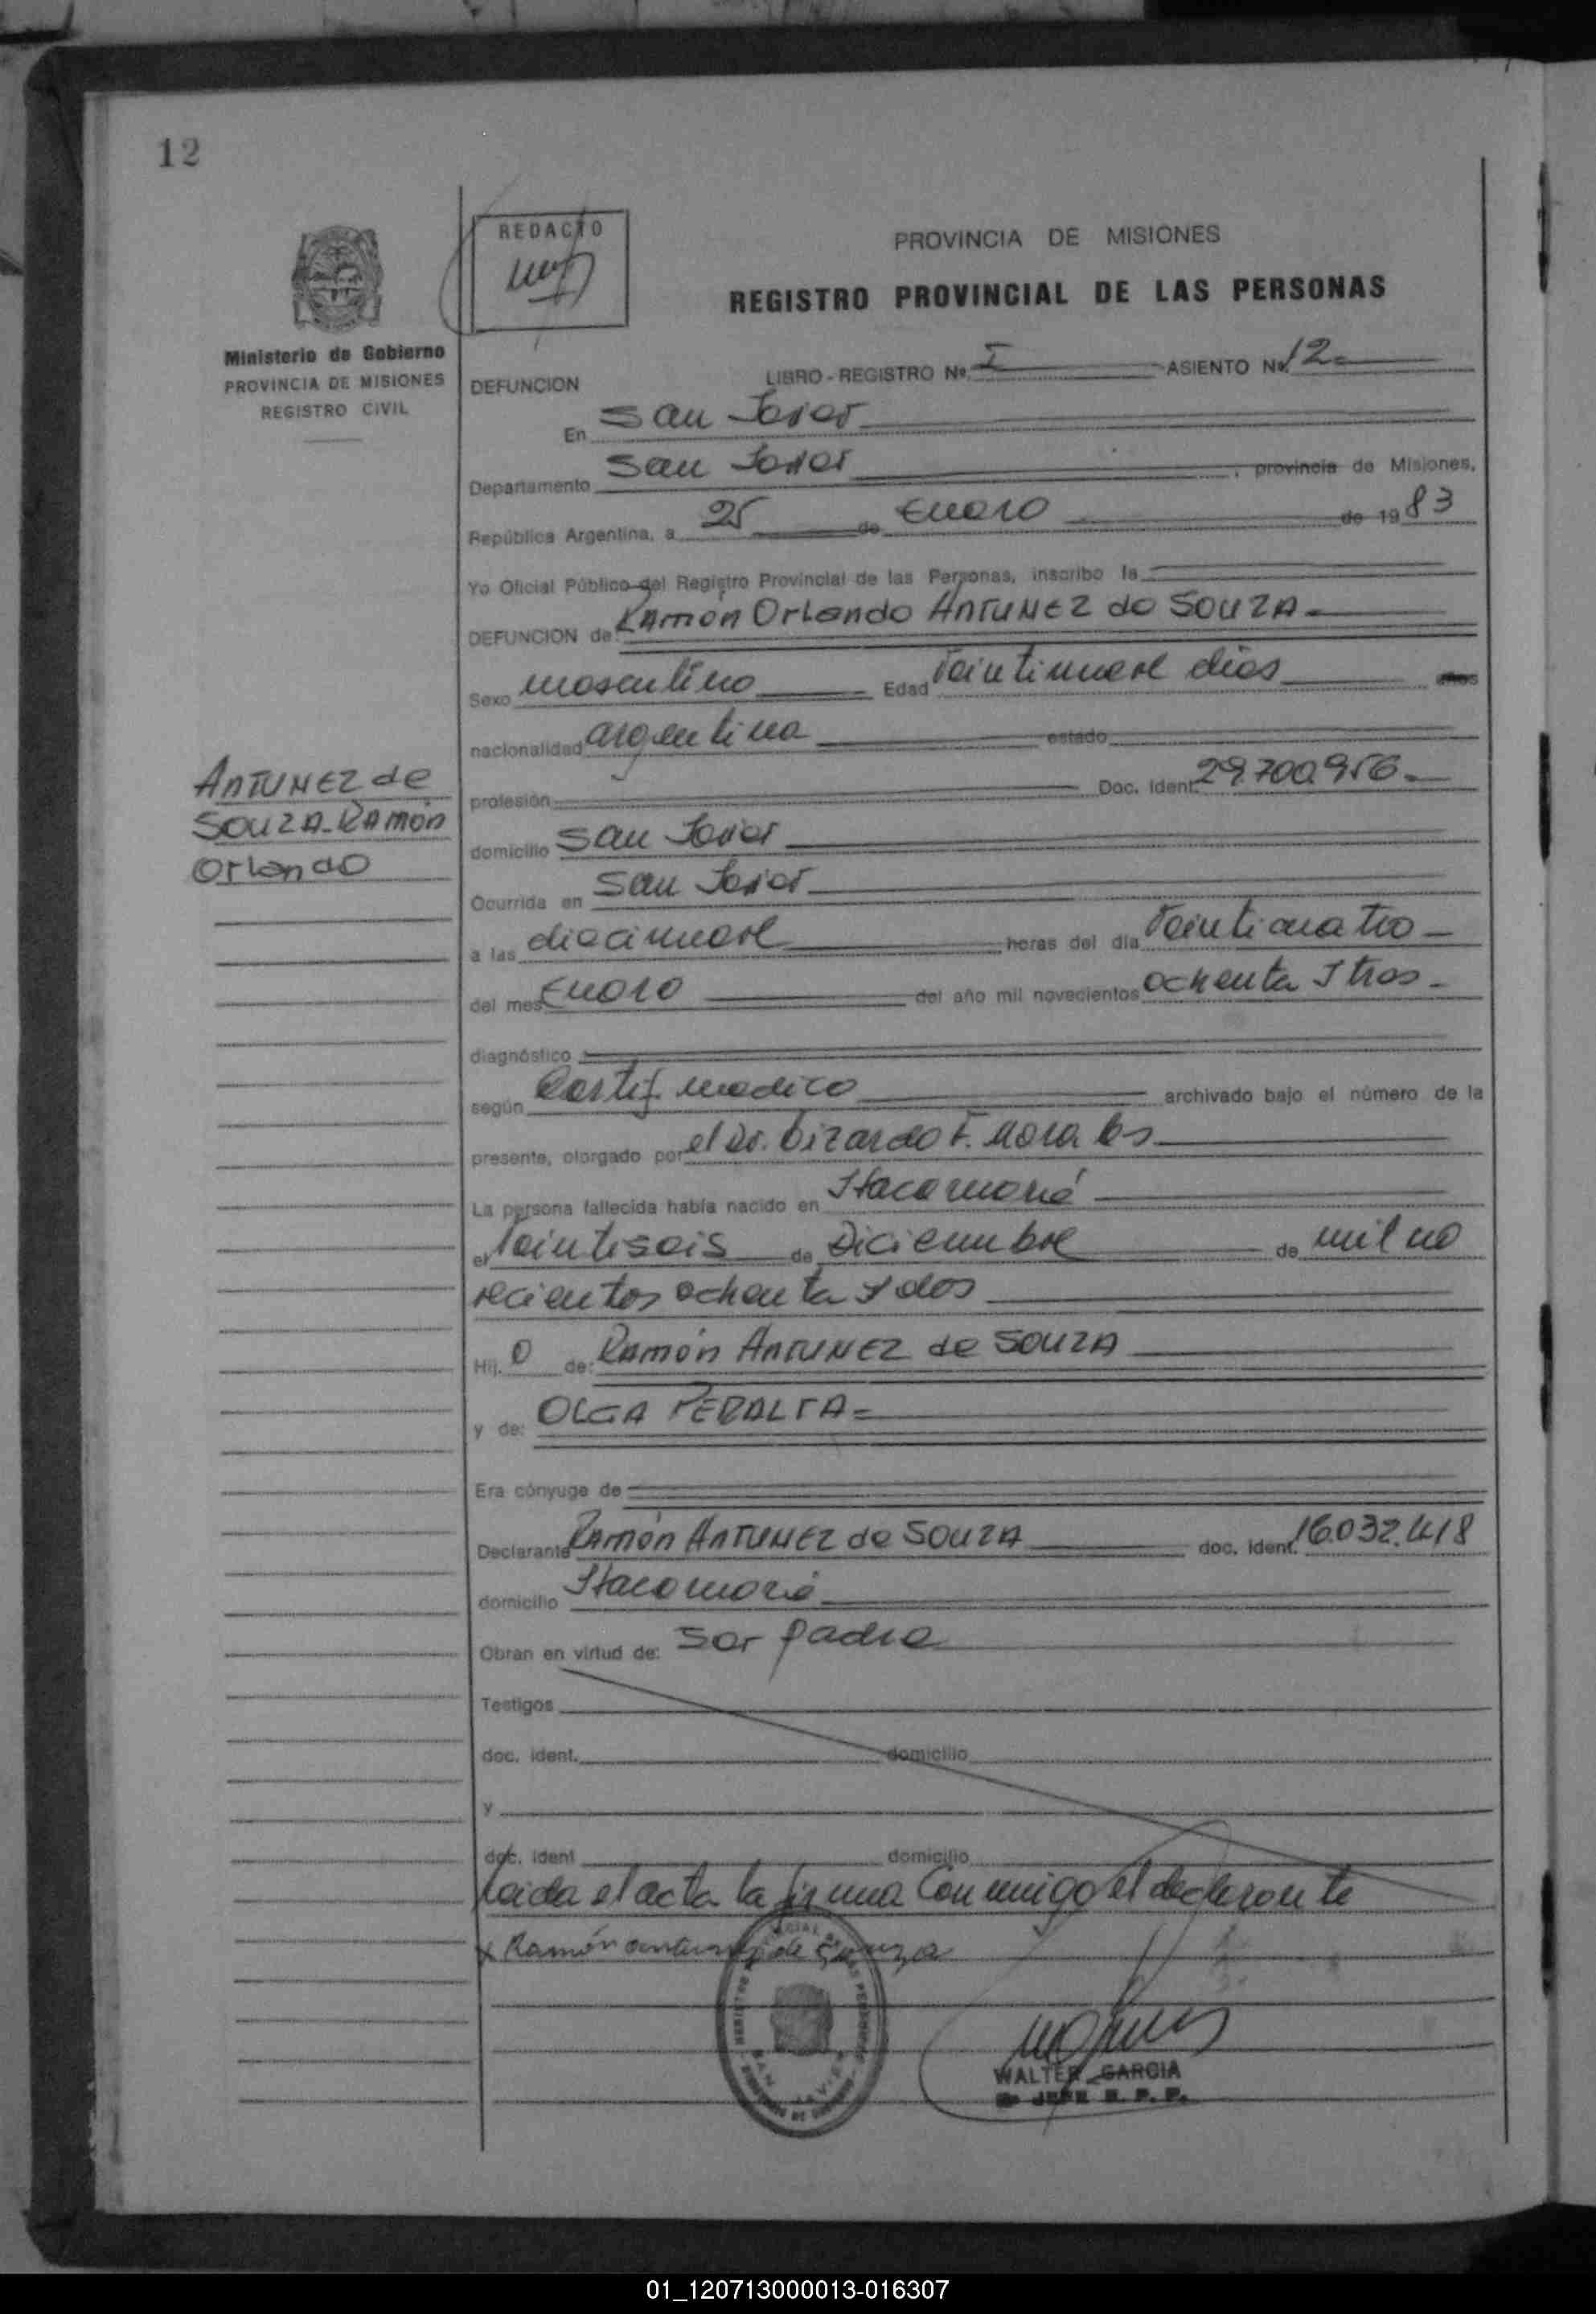 12
REDACTO
PROVINCIA DE MISIONES
REGISTRO PROVINCIAL DE LAS PERSONAS
Ministerio de Gobierno
PROVINCIA DE MISIONES
REGISTRO CIVIL
DEFUNCION LIBRO - REGISTRO Nº I ASIENTO Nº 12
En San Javier
Departamento San Javier, provincia de Misiones,
República Argentina, a 25 de Enero de 1983
Yo Oficial Público del Registro Provincial de las Personas, inscribo la
DEFUNCION de: Ramón Orlando ANTUNEZ de SOUZA
Sexo masculino Edad veintinueve dias años
nacionalidad argentina estado
ANTUNEZ de
SOUZA - RAMÓN
Orlando
profesión Doc. Ident. 29.700.956
domicilio San Javier
Ocurrida en San Javier
a las diecinueve horas del día veinticuatro
del mes Enero del año mil novecientos ochenta y tres
diagnóstico
según Certif. medico archivado bajo el número de la
presente, otorgado por el Dr. Lizardo F. Morales
La persona fallecida había nacido en Itacaruaré
el veintiseis de Diciembre de mil no
vecientos ochenta y dos
Hij. o de: Ramón ANTUNEZ de SOUZA
y de: OLGA PERALTA
Era cónyuge de
Declarante Ramón ANTUNEZ de SOUZA doc. ident. 16.032.418
domicilio Itacaruaré
Obran en virtud de: Ser padre
Testigos
doc. ident. domicilio
y
doc. ident domicilio
Leida el acta la firma conmigo el declarante
x Ramón antunez de Souza
SAN JAVIER
WALTER GARCIA
JEFE R. P. P.
01_120713000013-016307